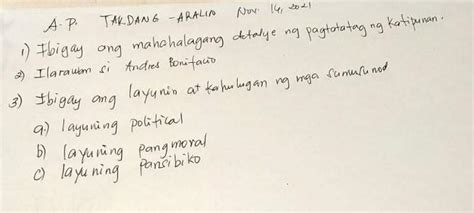 A.P. TAKDANG-ARALIN Nov. 14, 2021
1) Ibigay ang mahahalagang detalye ng pagtatatag ng Katipunan.
2) Ilarawan si Andres Bonifacio
3) Ibigay ang layunin at kahulugan ng mga sumusunod
a.) layuning political
b) layuning pangmoral
c) layuning pansibiko